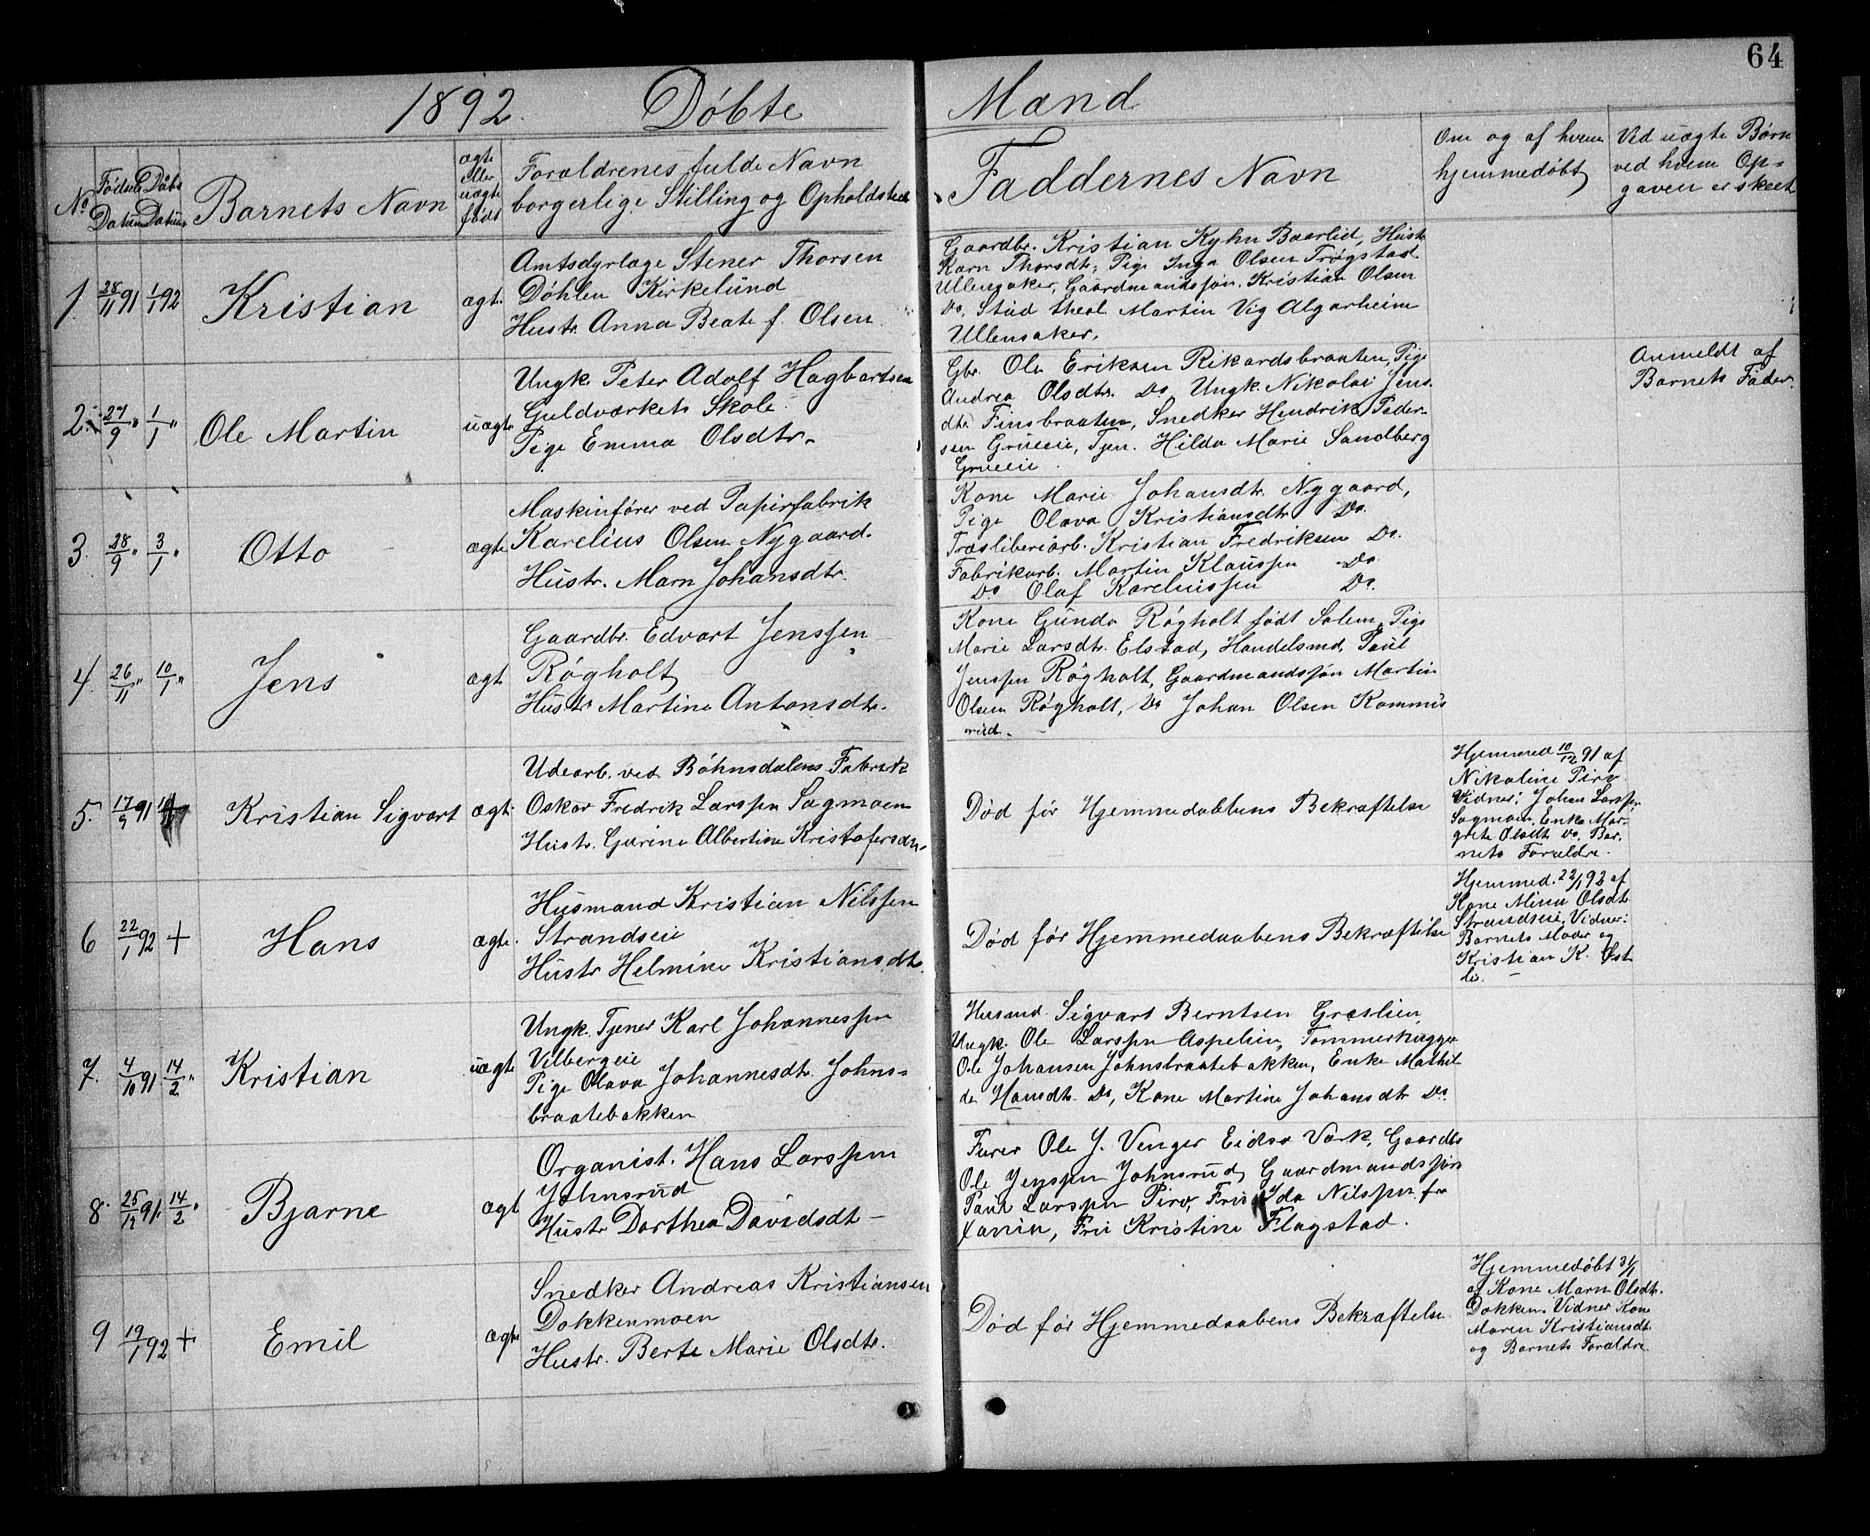 64
1892. Döbte Mænd
No. Fødsels Datum Daabs Datum Barnets Navn ægte eller uægte født Forældrenes fulde Navn borgerlige Stilling og Opholdssted Faddernes Navn Om og af hvem hjemmedøbt Ved uægte Børn ved hvem Opgaven er skeet
1. 28/11 91 1/1 92 Kristian ægt.
Amtsdyrlæge Stener Thorsen
Döhlen Kirkelund
Hustr. Anna Beate f. Olsen
Gaardbr. Kristian Kyhn Baarlid, Hustr
Karn Thorsdt., Pige Inga Olsen Trøgstad
Ullensaker, Gaardmandssøn. Kristian Olsen
Do, Stud theol Martin Vig Algarheim
Ullensaker.
2. 27/9 " 1/1 " Ole Martin uægte
Ungk. Peter Adolf Hagbartsen
Guldværkets Skole
Pige Emma Olsdtr.
Gbr. Ole Eriksen Rikardsbraaten, Pige
Andrea Olsdtr. Do. Ungk. Nikolai Jens.
dtr. Finsbraaten, Snedker Hendrik Peder-
sen Grueeie, Tjen. Hilda Marie Sandberg
Grueeie
Anmeldt af
Barnets Fader.
3. 28/9 " 3/1 " Otto ægte
Maskinfører ved Papirfabrik
Karelius Olsen Nygaard.
Hustr. Marn Johansdtr.
Kone Marie Johansdtr. Nygaard,
Pige Olava Kristiansdtr. Do.
Træsliberiarb. Kristian Fredriksen Do.
Fabrikarb. Martin Klaussen Do.
Do Olaf Kareliussen Do.
4. 26/11 " 10/1 " Jens ægt.
Gaardbr. Edvart Jenssen
Røgholt
Hustr. Martine Antonsdtr.
Kone Gunda Røgholt født Solem, Pige
Marie Larsdtr. Elstad, Handelsmd. Paul
Jenssen Røgholt, Gaardmandssøn Martin
Olsen Røgholt, Do Johan Olsen Kommis
rud.
5. 17/9 91 Kristian Sigvart ægt.
Udearb. ved Böhnsdalens Fabrik
Oskar Fredrik Larssen Sagmoen
Hustr. Gurine Albertine Kristofersdtr.
Død før Hjemmedaabens Bekræftelse
Hjemmed. 10/12 91 af
Nikoline Piro.
Vidner: Johan Larssen
Sagmoen, Enke Mar-
grete Olsdt. Do. Bar-
nets Forældre.
6 22/1 92 + Hans ægte.
Husmand Kristian Nilssen
Strandseie
Hustr Helmine Kristiansdtr.
Død før Hjemmedaabens Bekræftelse
Hjemmed. 22/1 92 af
Kone Mina Olsdt.
Strandseie, Vidner:
Barnets Moder og
Kristian K. Øst
lie.
7. 4/10 91 14/2 " Kristian uægt
Ungk. Tjener Karl Johannessen
Vilbergeie
Pige Olava Johannesdtr. Johns-
braatebakken
Husmd. Sigvart Berntsen Græslien,
Ungk. Ole Larssen Aspelien, Tømmerhugger
Ole Johansen Johnsbraatebakken, Enke Mathil
de Hansdtr. Do, Kone Martine Johansdtr Do.
8. 25/12 91. 14/2 " Bjarne ægt
Organist. Hans Larssen
Johnsrud
Hustr Dorthea Davidsdt.
Furer Ole J. Venger Eidsv Værk, Gaardbr
Ole Jenssen Johnsrud, Gaardmandssøn
Paul Larssen Piro, Frue Ida Nilssen fra
, Fru Kristine Flagstad.
9 19/1 92 + Emil ægte
Snedker Andreas Kristiansen
Dokkenmoen
Hustr. Berte Marie Olsdtr.
Død før Hjemmedaabens Bekræftelse
Hjemmedøbt 31/1
af Kone Marn Olsdt.
Dokken. Vidner Kone
Maren Kristiansdt.
og Barnets Forældre